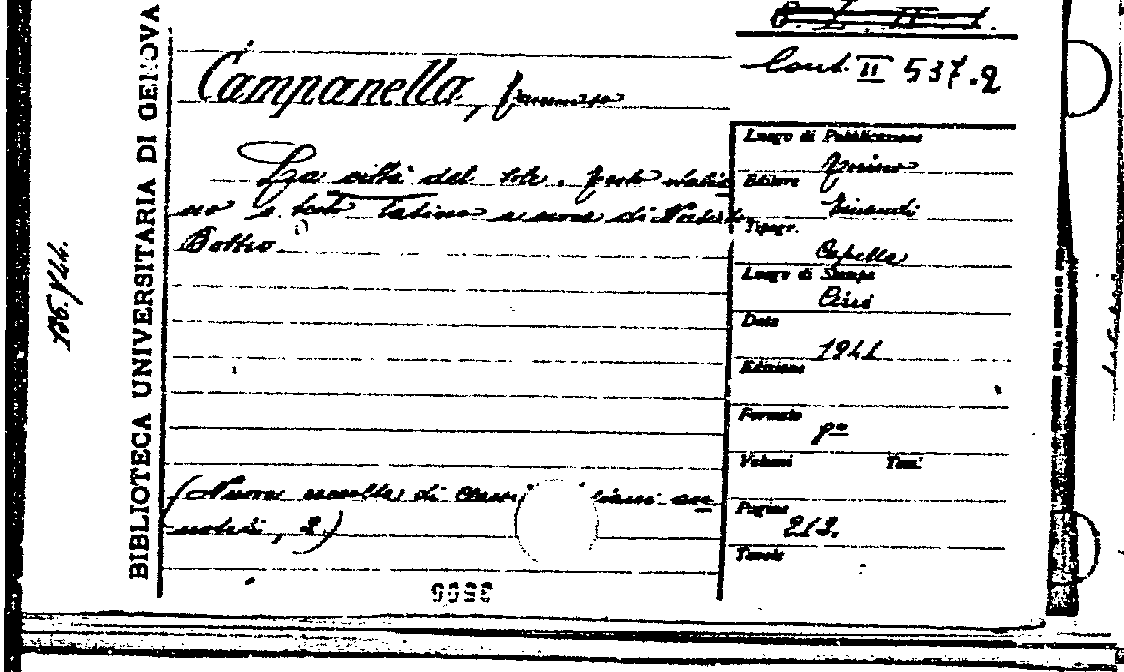 BIBLIOTECA UNIVERSITARIA DI GENOVA
136.744.
Cont. II 537.2
Campanella, Tommaso
La città del sole. Testo italia
no e testo latino a cura di Norberto
Bobbio
(Nuova raccolta di classi liani an
notati, 2)
Luogo di Pubblicazione
Torino
Editore
Einaudi
Tipogr.
Capella
Luogo di Stampa
Ciriè
Data
1941
Edizione
Formato
8º
Volumi Tomi
Pagine
212.
Tavole